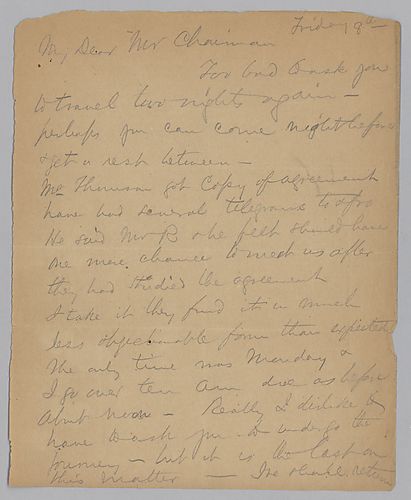 Friday 8th
My Dear Mr Chairman
Too bad to ask you
to travel two nights again —
perhaps you can come night before
& get a rest between —
Mr Thomson got Copy of agreement
have had several telegrams to & fro
He said Mr R & he felt should have
one more chance to meet us after
they had studied the agreement
I take it they find it in much
less objectionable form than expected
The only time was Monday &
I go over ten am due as before
about noon — Really I dislike to
have to ask you to undergo the
journey — but it is the last on
this matter — I shall return